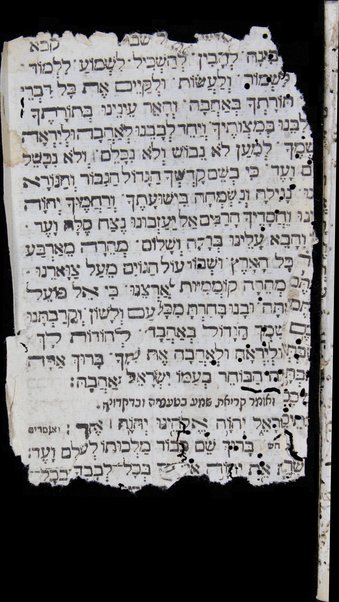 לשבת קבא
בינה להבין להשכיל לשמוע ללמוד
לשמור ולעשות ולקיים את כל דברי
תורתך באהבה והאר עינינו בתורתך
לבנו במצותיך ויחד לבבנו לאהבה וליראה
שמך למען לא נבוש ולא נכלם ולא נכשל
ועד כי בשם קדשך הגדול הגבור והנורא
נגילה ונשמחה בישועתך ורחמיך יהוה
וחסדיך הרבים אל יעזבונו נצח סלה ועד
והבא עלינו ברכה ושלום מהרה מארבע
כל הארץ ושבור עול הגוים מעל צוארנו
מהרה קוממיות לארצנו כי אל פועל
ובנו בחרת מכל עם ולשון וקרבתנו
הגדול באהבה להודות לך
וליראה ולאהבה את ברוך אתה
הבוחר בעמו ישראל באהבה
ואומר קריאת שמע בטעמיה ובדקדוקיה
יהוה אלהינו יהוה אחד ואומרים
ברוך שם כבוד מלכותו לעולם ועד
את יהוה בכל לבבך ובכל